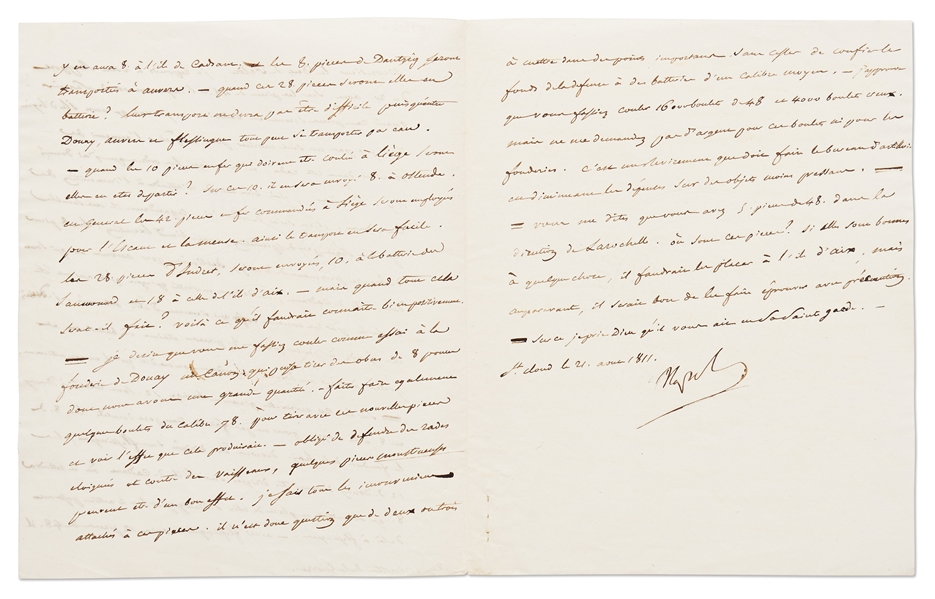 y en aura 8. à l'ile de Cadsan, — les 8. pieces de Dantzig seront
transportées à anvers. — quand ces 28 pieces seront elles en
batterie? leur transport ne devra pas etre difficile puisqu'entre
Douay, anvers et flessingue tout peut se transporter par eau.
— quand les 10 pieces en fer qui doivent etre coulées à Liège seront
elles en etat de partir? Sur ces 10. il en sera envoyé 8. à ostende.
en general les 42 pieces en fer commandées à Liège seront employées
pour l'Escaut et la meuse. ainsi le transport en sera facile.
les 28 pieces d'Indret, seront envoyées, 10. à la batterie du
Saumonard et 18 à celle de l'ile d'aix. — mais quand tout cela
sera-t-il fait? voilà ce qu'il faudrait connaitre bien positivement.
— je desire que vous me fassiez couler comme essai à la
fonderie de Douay un Canon qui puisse tirer des obus de 8 pouces
dont nous avons une grande quantité. — faites faire egalement
quelques boulets du calibre 78. pour tirer avec ces nouvelles pieces
et voir l'effet que cela produirait. — obligé de defendre des rades
eloignées et contre des vaisseaux, quelques pieces monstrueuses
peuvent etre d'un bon effet. je sais tous les inconveniens
attachés à ces pieces. il n'est donc question que de deux ou trois
à mettre dans des points importans sans cesser de confier le
fonds de la defense à des batteries d'un calibre moyen. — j'approuve
que vous fassiez couler 1600 boulets de 48 et 4000 boulets creux.
mais ne me demandez pas d'argent pour ces boulets ni pour les
fonderies. C'est un virement que doit faire le bureau d'artillerie
en diminuant les depenses sur des objets moins pressans. —
— vous me dites que vous avez 5. pieces de 48. dans la
direction de Larochelle. où sont ces pieces? si elles sont bonnes
à quelque chose, il faudrait les placer à l'ile d'aix, mais
auparavant, il serait bon de les faire éprouver avec précaution.
— sur ce je prie Dieu qu'il vous ait en sa Sainte garde. —
St. cloud le 21. aout 1811.
Napol